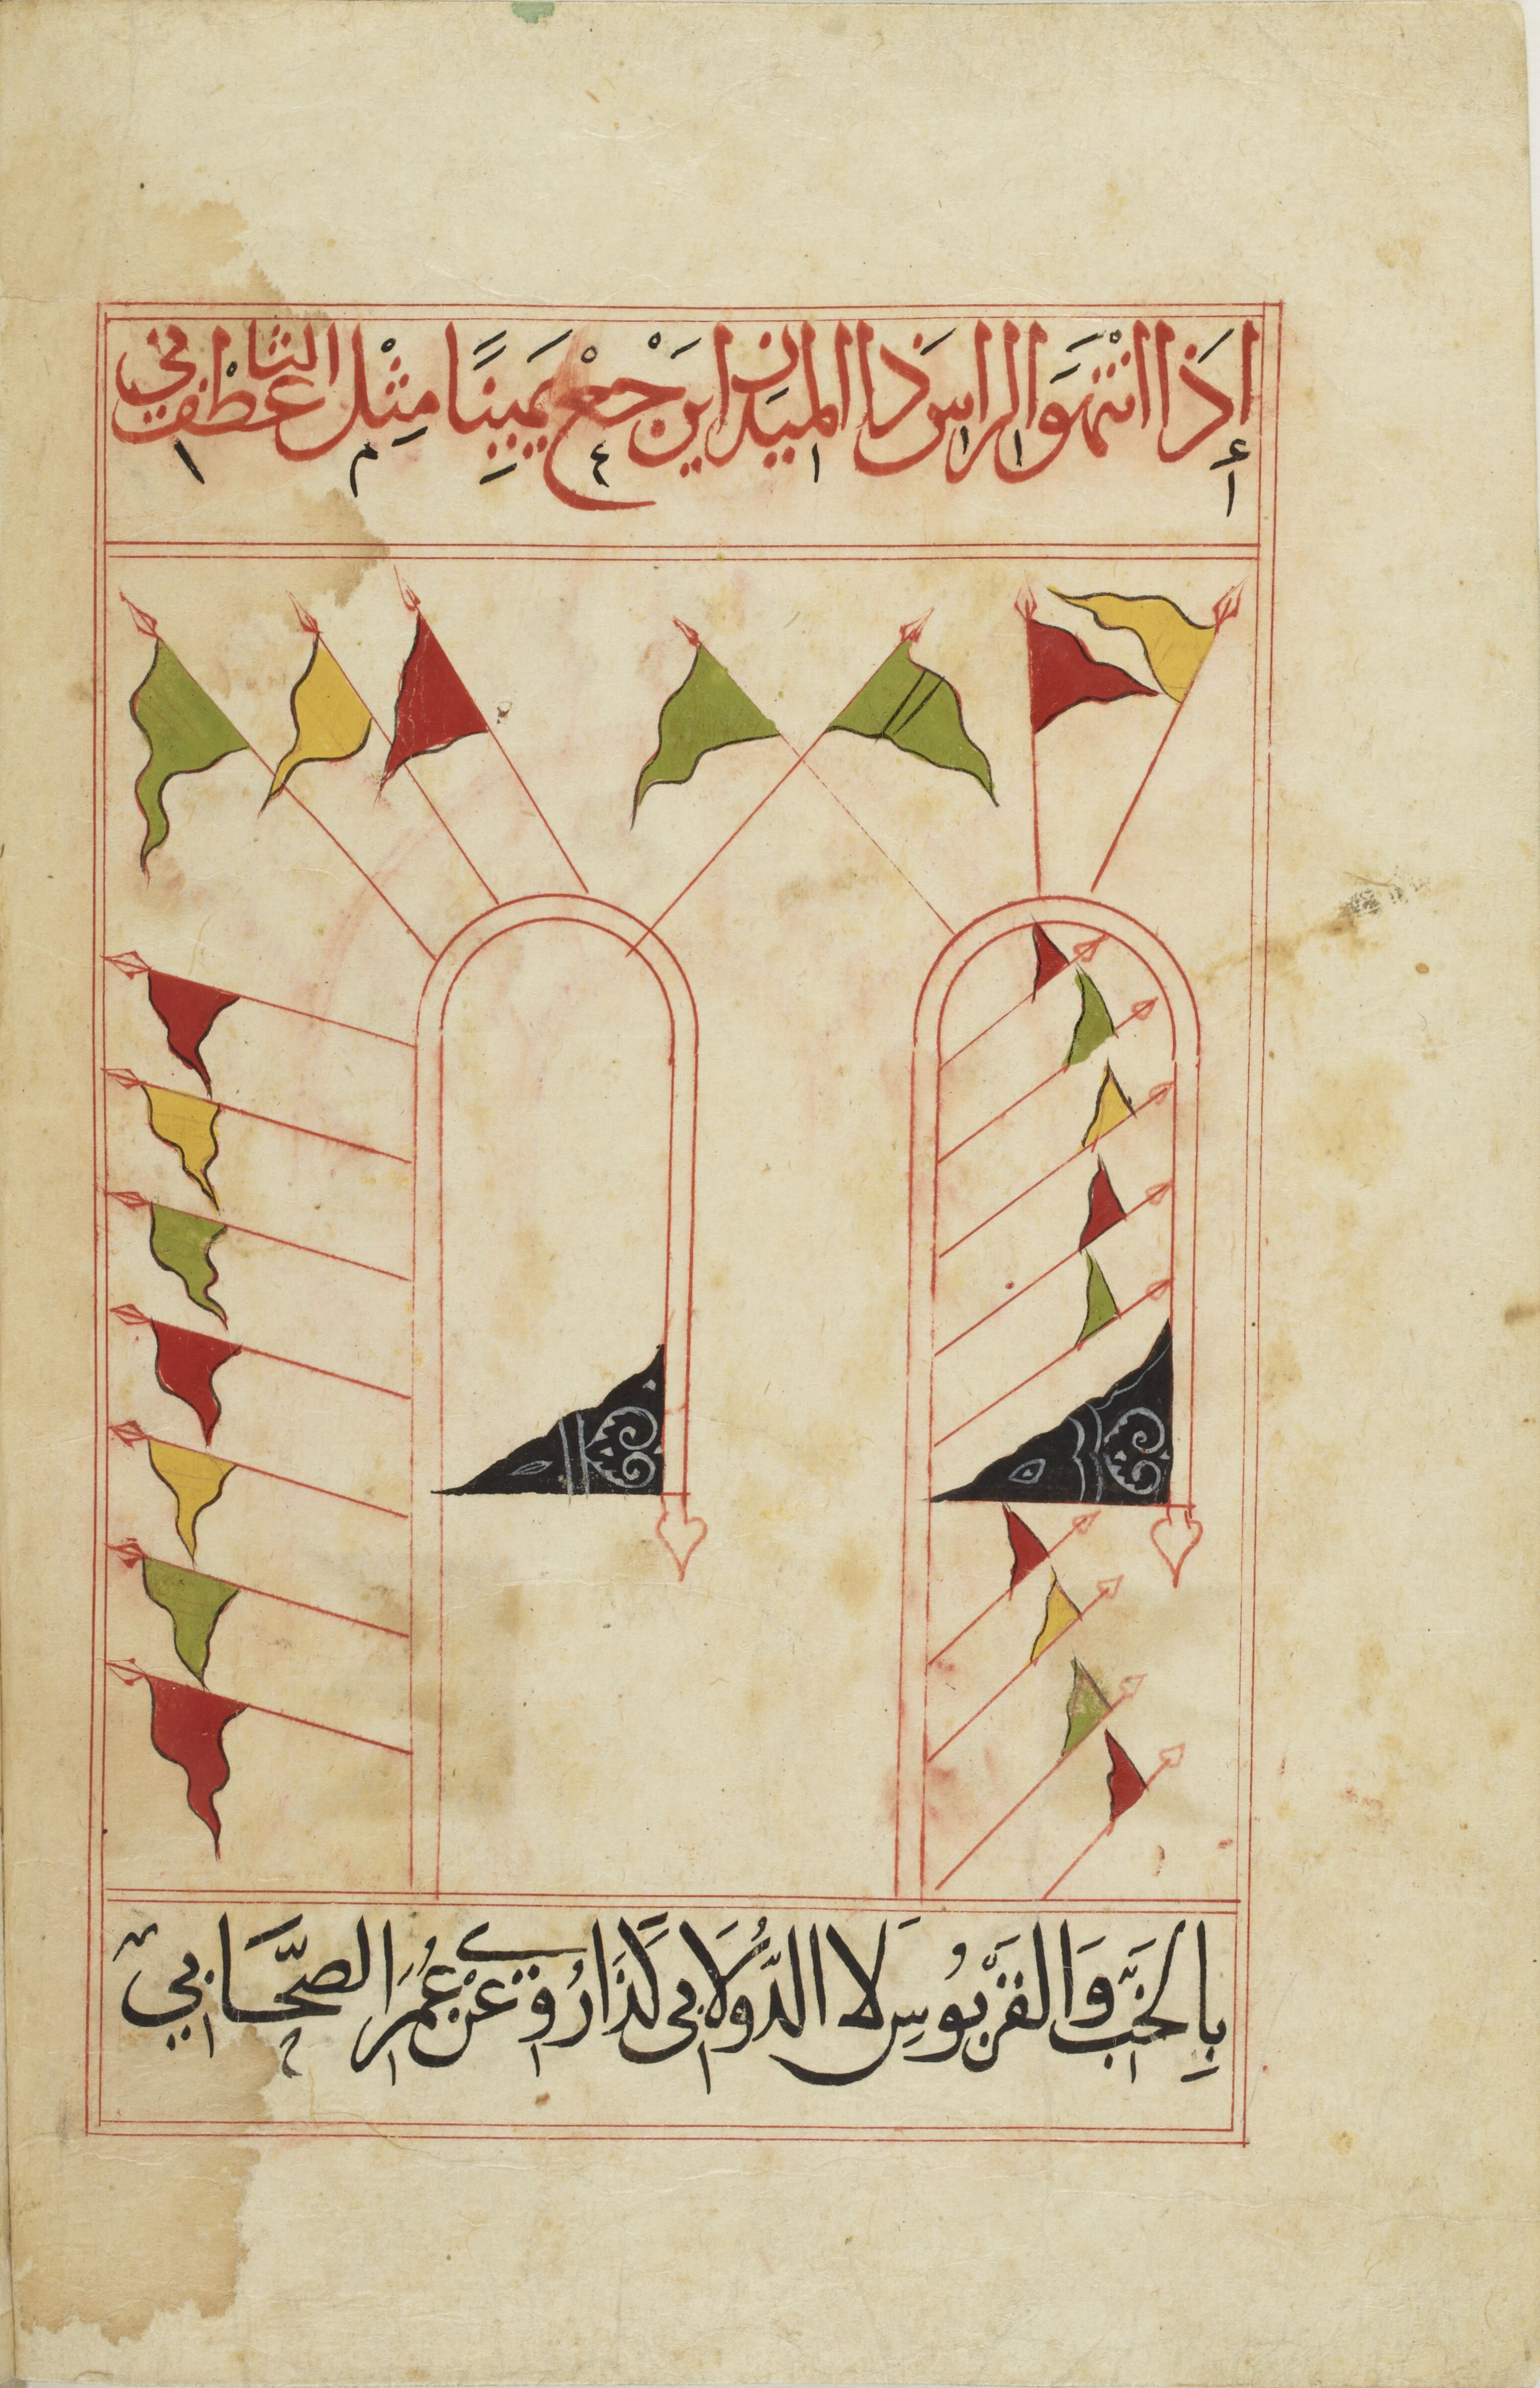 إِذَا انْتَهَوَا الراس ذَا الميدان ارجَعْ يَمِينًا مِثْل الثاني عطْف
بِالخَبِّ وَالقَرَبُوسِ لَا الدُّولَابي كَذَا رُوِي عَنْ عُمَرَ الصَّحَابي